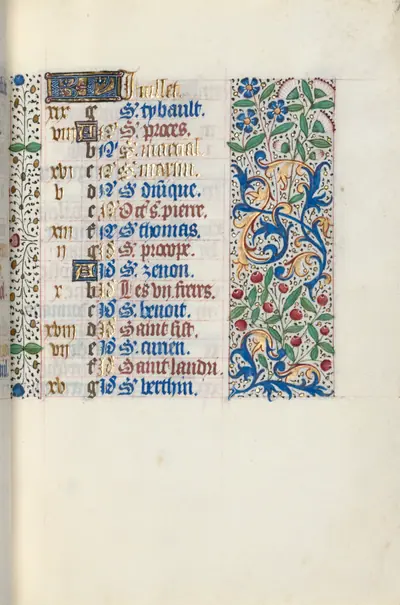 Juillet.
xix g S. tybault.
viii A N S. proces.
b N S. marcial.
xvi c N S. martin.
v d N S. dnique.
e N Oct. s. pierre.
xiii f N S. thomas.
ii g S. procope.
A Id S. zenon.
x b Id Les vii freres.
c Id S. benoit.
xviii d Id Saint
vii e Id S. turien.
f Id Saint landri.
xv g Id S. berthin.